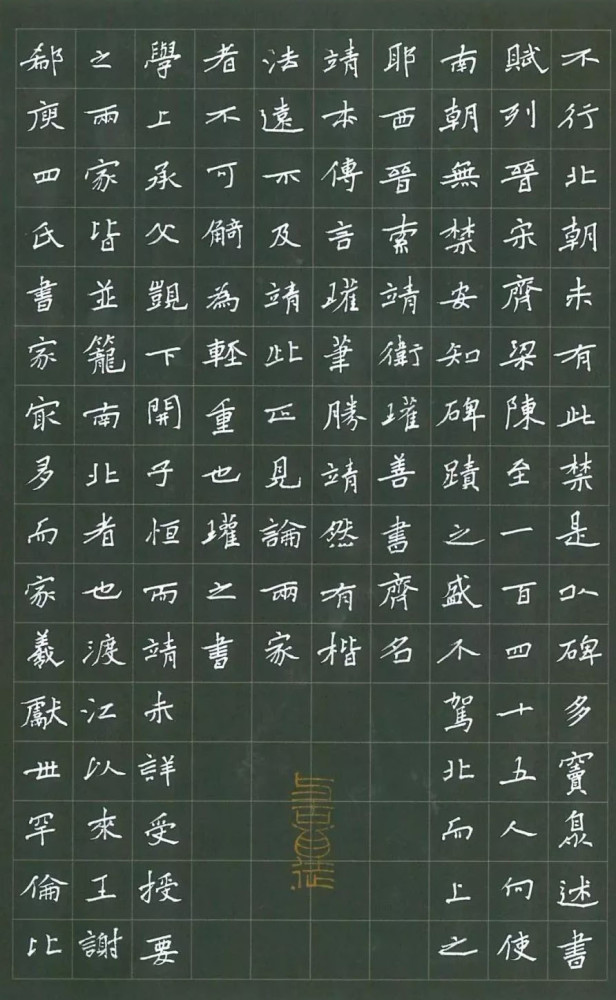 不行北朝未有此禁是以碑多竇臮述書
賦列晉宋齊梁陳至一百四十五人向使
南朝無禁安知碑蹟之盛不駕北而上之
耶西晉索靖衛瓘善書齊名
靖本傳言瓘筆勝靖然有楷
法遠不及靖此正見論兩家
者不可觭為輕重也瓘之書
學上承父覬下開子恒而靖未詳受授要
之兩家皆並籠南北者也渡江以來王謝
郗庾四氏書家冣多而家羲獻世罕倫比